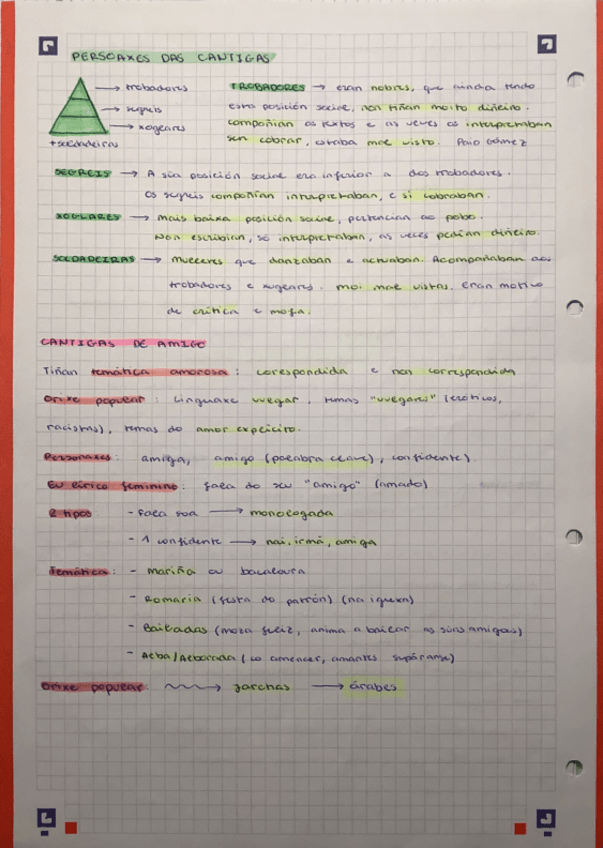 PERSOAXES DAS CANTIGAS
→ trobadores
→ segreis
→ xograres
+ soldadeiras
TROBADORES → eran nobres, que aínda tendo
esta posición social, non tiñan moito diñeiro.
compoñían os textos e as veces os interpretaban
sen cobrar, estaba mal visto. Paio Gómez
SEGREIS → A súa posición social era inferior a dos trobadores.
Os segreis compoñían interpretaban, e si cobraban.
XOGLARES → mais baixa posición social, pertencían ao pobo.
Non escribían, só interpretaban, as veces pedían diñeiro.
SOLDADEIRAS → mulleres que danzaban e actuaban. Acompañaban aos
trobadores e xograres. moi mal vistas. eran motivo
de crítica e mofa.
CANTIGAS DE AMIGO
Tiñan temática amorosa: correspondida e non correspondida
Orixe popular: linguaxe vulgar, temas "vulgares" (eróticos,
racistas), temas do amor explícito.
Personaxes: amiga, amigo (palabra clave), confidente)
Eu lírico feminino: fala do seu "amigo" (amado)
2 tipos - fala soa → monologada
- 1 confidente → nai, irmá, amiga
Temática: - mariña ou barcarola
- Romaría (festa do patrón) (na igrexa)
- Bailadas (moza feliz, anima a bailar as súas amigas)
- Alba/Alborada (ao amencer, amantes sepáranse)
Orixe popular: → jarchas → árabes